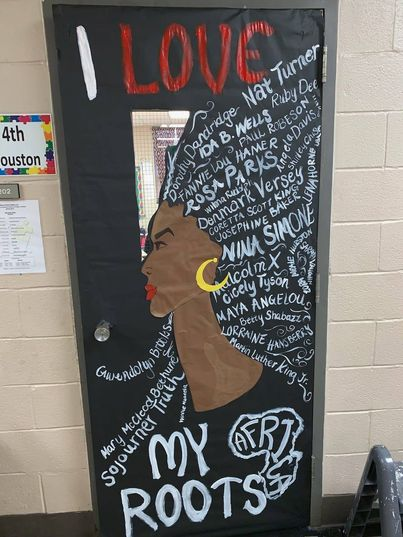 I LOVE
4th
ouston
202
Nat Turner
Ruby Dee
Dorothy Dandridge
IDA B. WELLS
PAUL ROBESON
Angela Davis
FANNIE LOU HAMER
ROSA PARKS
Wilma Rudolph
Denmark Versey
CORETTA SCOTT KING
JOSEPHINE BAKER
LENA HORNE
NINA SIMONE
Malcolm X
Cicely Tyson
MAYA ANGELOU
Betty Shabazz
LORRAINE HANSBERRY
Martin Luther King Jr.
Gwendolyn Brooks
Mary McCleod Bethune
Sojourner Truth
MY
AFRICA
ROOTS